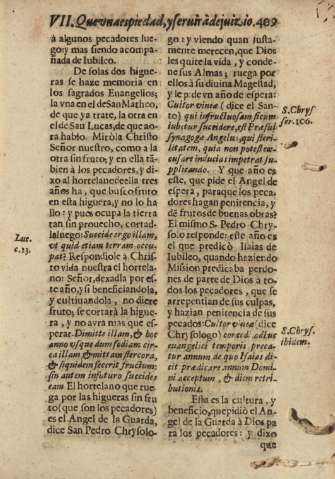 VII. Que vna es piedad, y seruir à de juizio. 409
à algunos pecadores lue-
go: y mas siendo acompa-
ñada de Iubileo.
De solas dos higue-
ras se haze memoria en
los sagrados Euangelios;
la vna en el de San Matheo,
de que ya trate, la otra en
el de San Lucas, de que ao-
ra hablo. Miròla Christo
Señor nuestro, como à la
otra sin fruto, y en ella tã-
bien à los pecadores, y di-
xo al hortelano: ella tres
años ha, que busco fruto
en esta higuera, y no lo ha
llo: y pues ocupa la tierra
tan sin prouecho, cortad-
la luego: Succide ergo illam,
vt quid etiam terram occu-
pat? Respondiole à Chris-
to vida nuestra el hortela-
no: Señor, dexadla por es-
te año, y si beneficiandola,
y cultiuandola, no diere
fruto, se cortarà la higue-
ra, y no avrà mas que es-
perar. Dimitte illam, & hoc
anno vsque dum fodiam cir-
ca illam & mittam stercora,
& siquidem fecerit fructum;
sin autem in futuro succides
eam. El hortelano que rue-
ga por las higueras sin fru
to (que son los pecadores)
es el Angel de la Guarda,
dice San Pedro Chrysolo-
Luc.
c. 13.
go: y viendo quan justa-
mente merecen, que Dios
les quite la vida, y conde-
ne sus Almas; ruega por
ellos à su diuina Magestad,
y le pide vn año de espera:
Cultor vineæ (dice el San-
to) qui infructuosam ficum
iubitur succidere, est Præsul
Synagogæ Angelus, qui steri-
litatem, quia non potest ex-
cusare inducias impetrat su-
pplicando. Y que año es
este, que pide el Angel de
espera, para que los peca-
dores hagan penitencia, y
dè frutos de buenas obras?
El mismo S. Pedro Chry-
solo responde: este año es
el que predicò Isaias de
Iubileo, quando haziendo
Mission predicaba perdo-
nes de parte de Dios à to-
dos los pecadores, que se
arrepentian de sus culpas,
y hazian penitencia de sus
pecados: Cultor vineæ (dice
Chrysologo)
euangelici temporis preca-
tur annum de quo Isaias di-
cit prædicare annum Domi-
ni acceptum, & diem retri-
butionis.
Esta es la cultura, y
beneficio, que pidiò el An-
gel de la Guarda à Dios pa
ra los pecadores: y dixo
que
S. Chrys
ser. 106.
S. Chrys.
ibidem.